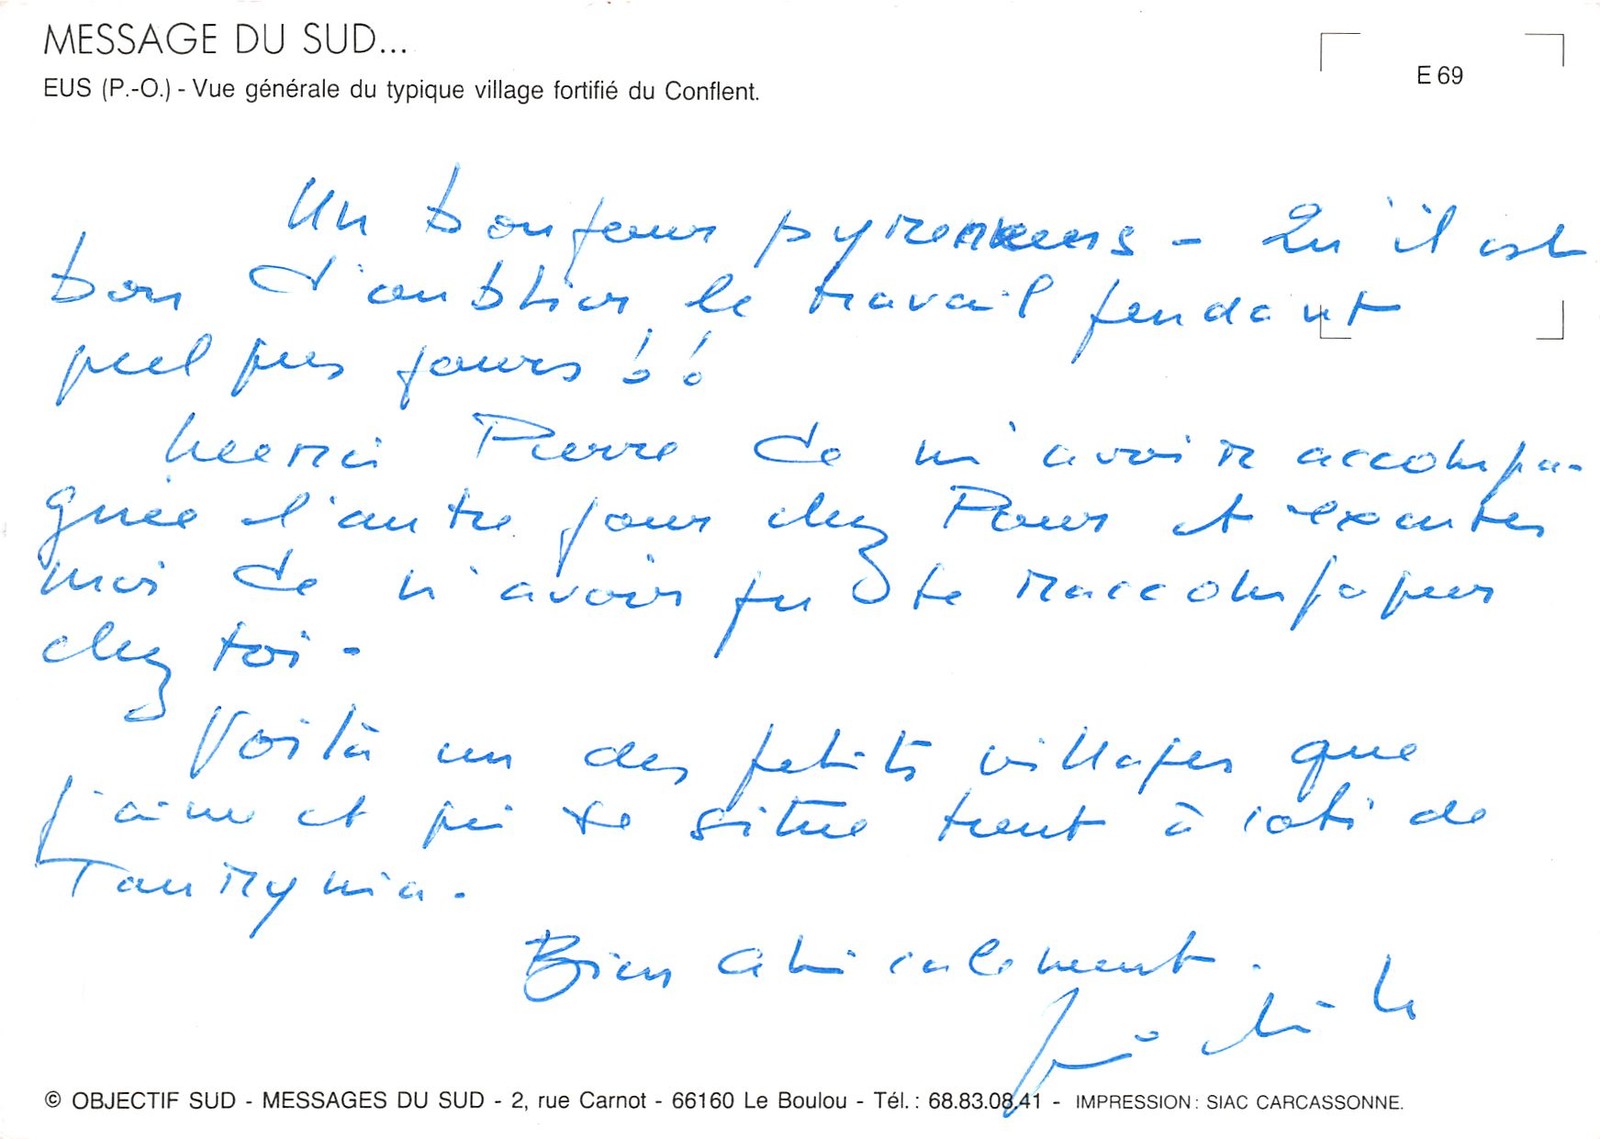 MESSAGE DU SUD...
EUS (P.-O.) - Vue générale du typique village fortifié du Conflent.
E 69
Un bonjour pyrénéens - Qu'il est
bon d'oublier le travail pendant
quelques jours !!
Merci Pierre de m'avoir accompa-
gnée l'autre jour chez et
moi de n'avoir pu te raccompagner
chez toi -
Voilà un des petits villages que
j'aime et qui se situe tout à coté de
Taurynia.
Bien amicalement.
© OBJECTIF SUD - MESSAGES DU SUD - 2, rue Carnot - 66160 Le Boulou - Tél. : 68.83.08.41 - IMPRESSION : SIAC CARCASSONNE.